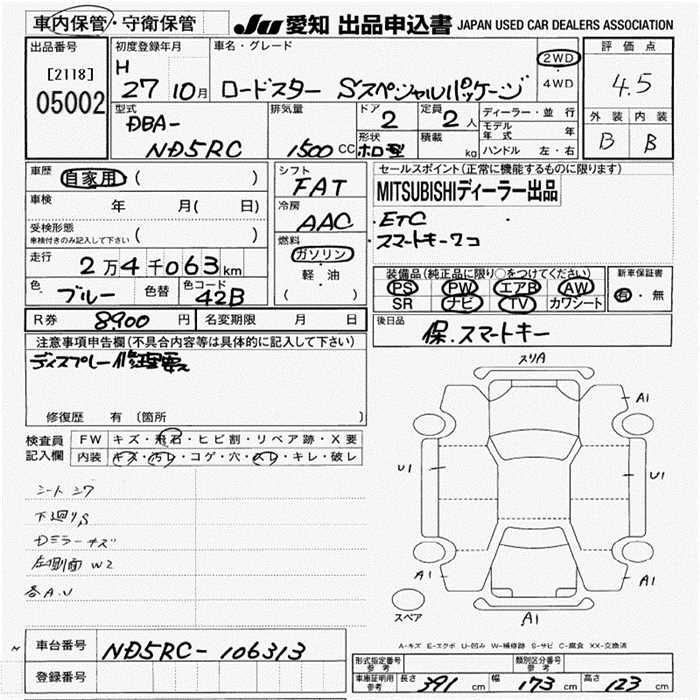 車内保管・守衛保管 JU 愛知 出品申込書 JAPAN USED CAR DEALERS ASSOCIATION
出品番号 初度登録年月 車名・グレード 評価点
[2118] H 2WD
05002 27 10月 ロードスター Sスペシャルパッケージ 4WD 4.5
型式 排気量 ドア 定員 ディーラー・並行 外装 内装
DBA- 2 2人 モデル年式 年
ND5RC 1500CC 形状 ホロ型 積載 kg ハンドル 左・右 B B
車歴 自家用 ( ) シフト セールスポイント(正常に機能するものに限ります)
FAT MITSUBISHIディーラー出品
車検 年 月( 日) 冷房
AAC ETC
受検形態 ( ) スマートキー2コ
車検付きのみ記入して下さい 燃料
走行 2万4千063km ガソリン 装備品(純正品に限り○をつけてください) 新車保証書
軽・油 PS PW エアB AW 有・無
色 ブルー 色替 色コード 42B ( ) SR ナビ TV カワシート
R券 8900円 名変期限 月 日 後日品
保.スマートキー
注意事項申告欄(不具合内容等は具体的に記入して下さい)
ディスプレー修理要ス
スリA
A1
修復歴 有 〔箇所 〕
検査員記入欄 FW キズ・飛石・ヒビ割・リペア跡・X要
内装 キズ・汚レ・コゲ・穴・スレ・キレ・破レ
U1 U1
シートシワ
下廻りS
Dミラーキズ
左側面W2
各A.U
A1 A1
スペア A1
A-キズ E-エクボ U-凹み W-補修跡 S-サビ C-腐食 XX-交換済
車台番号 ND5RC-106313
形式指定番号 参考 類別区分番号 参考
登録番号 車庫証明用 参考 長さ 391cm 幅 173cm 高さ 123cm